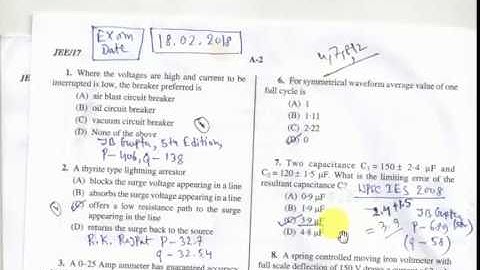 JEE/17
Exam
Date
18.02.2018
A-2
4,7,8,12
1. Where the voltages are high and current to be
interrupted is low, the breaker preferred is
(A) air blast circuit breaker
(B) oil circuit breaker
(C) vacuum circuit breaker
(D) None of the above
JB Gupta, 5th Edition,
P-406, Q-138
2. A thyrite type lightning arrestor
(A) blocks the surge voltage appearing in a line
(B) absorbs the surge voltage appearing in a line
offers a low resistance path to the surge
appearing in the line
(D) returns the surge back to the source
R.K. Rajpat P-32.7
q-32.54
3. A 0–25 Amp ammeter has guaranteed accuracy
6. For symmetrical waveform average value of one
full cycle is
(A) 1
(B) 1·11
(C) 2·22
0·0
7. Two capacitance C₁ = 150 ± 2·4 μF and
C₂ = 120 ± 1·5 μF. What is the limiting error of the
resultant capacitance C?
UPSC IES 2008
(A) 0·9 μF
(B) 1·9 μF
(C) 3·9 μF
(D) 4·8 μF
2.4+1.5
= 3.9
JB Gupta
P-689
(q-58)
8. A spring controlled moving iron voltmeter with
full scale deflection of 150 V draws a